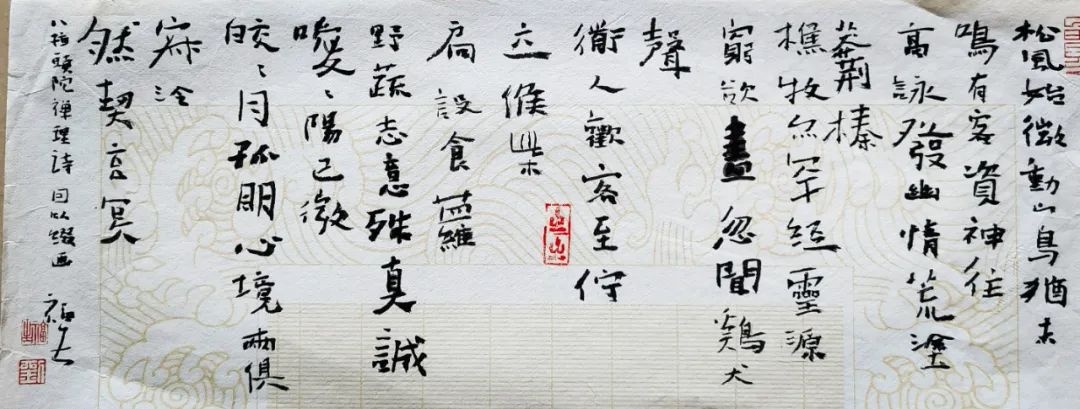 松風始微動山鳥猶未
鳴有客資神往
高詠發幽情荒塗
莽荊榛
樵牧亦罕經靈源
窮欲盡忽聞鷄犬
聲
衡人歡客至佇
立候柴
扃設食蘿
野蔬志意殊真誠
曖〻陽已微
皎〻月孤明心境兩俱
寂泠
然契言冥
八指頭陀禪理詩 因以綴画